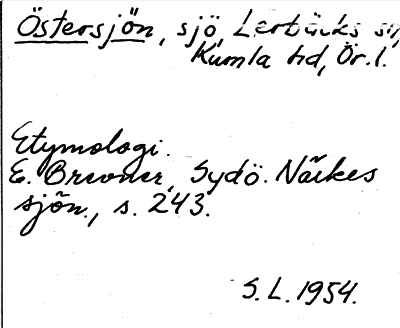 Östersjön, sjö, Lerbäcks sn,
Kumla hd, Ör. l.
Etymologi.
E. Brevner, Sydö. Närkes
sjön., s. 243.
S. L. 1954.